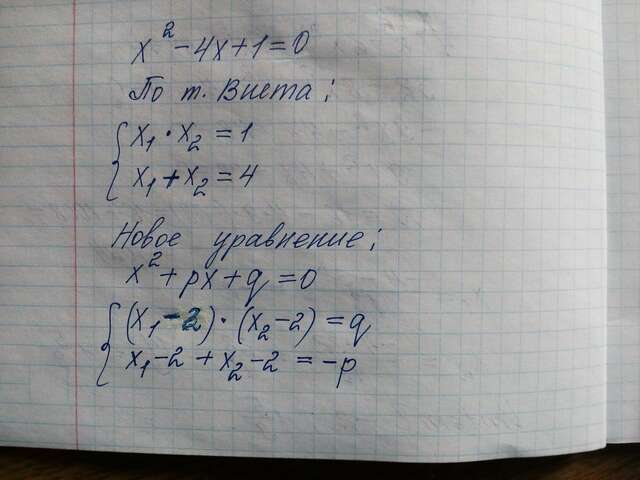 x² - 4x + 1 = 0
По т. Виета:
x₁ · x₂ = 1
x₁ + x₂ = 4
Новое уравнение:
x² + px + q = 0
(x₁ - 2) · (x₂ - 2) = q
x₁ - 2 + x₂ - 2 = -p